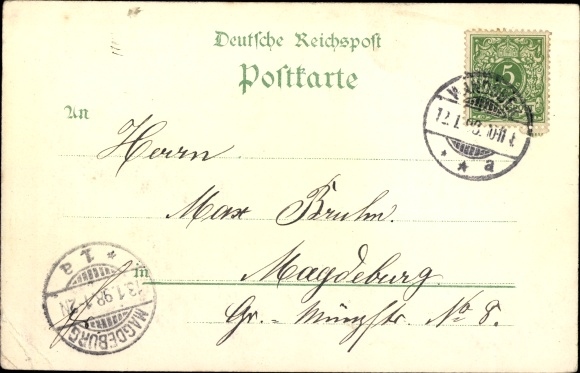 Deutsche Reichspost
Postkarte
5
12.1.98. 10-11 V.
* * a
An
Herrn
Max Bruhm.
in Magdeburg.
Gr.-Münzstr. No 8.
* 1. a
13.1.98.1-2N
MAGDEBURG